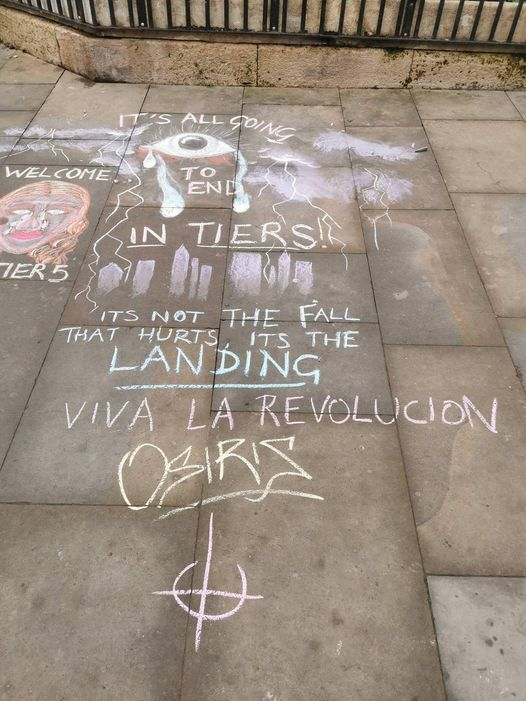 IT'S ALL GOING
TO
END
IN TIERS!
WELCOME
TIER 5
ITS NOT THE FALL
THAT HURTS ITS THE
LANDING
VIVA LA REVOLUCION
OSIRIS